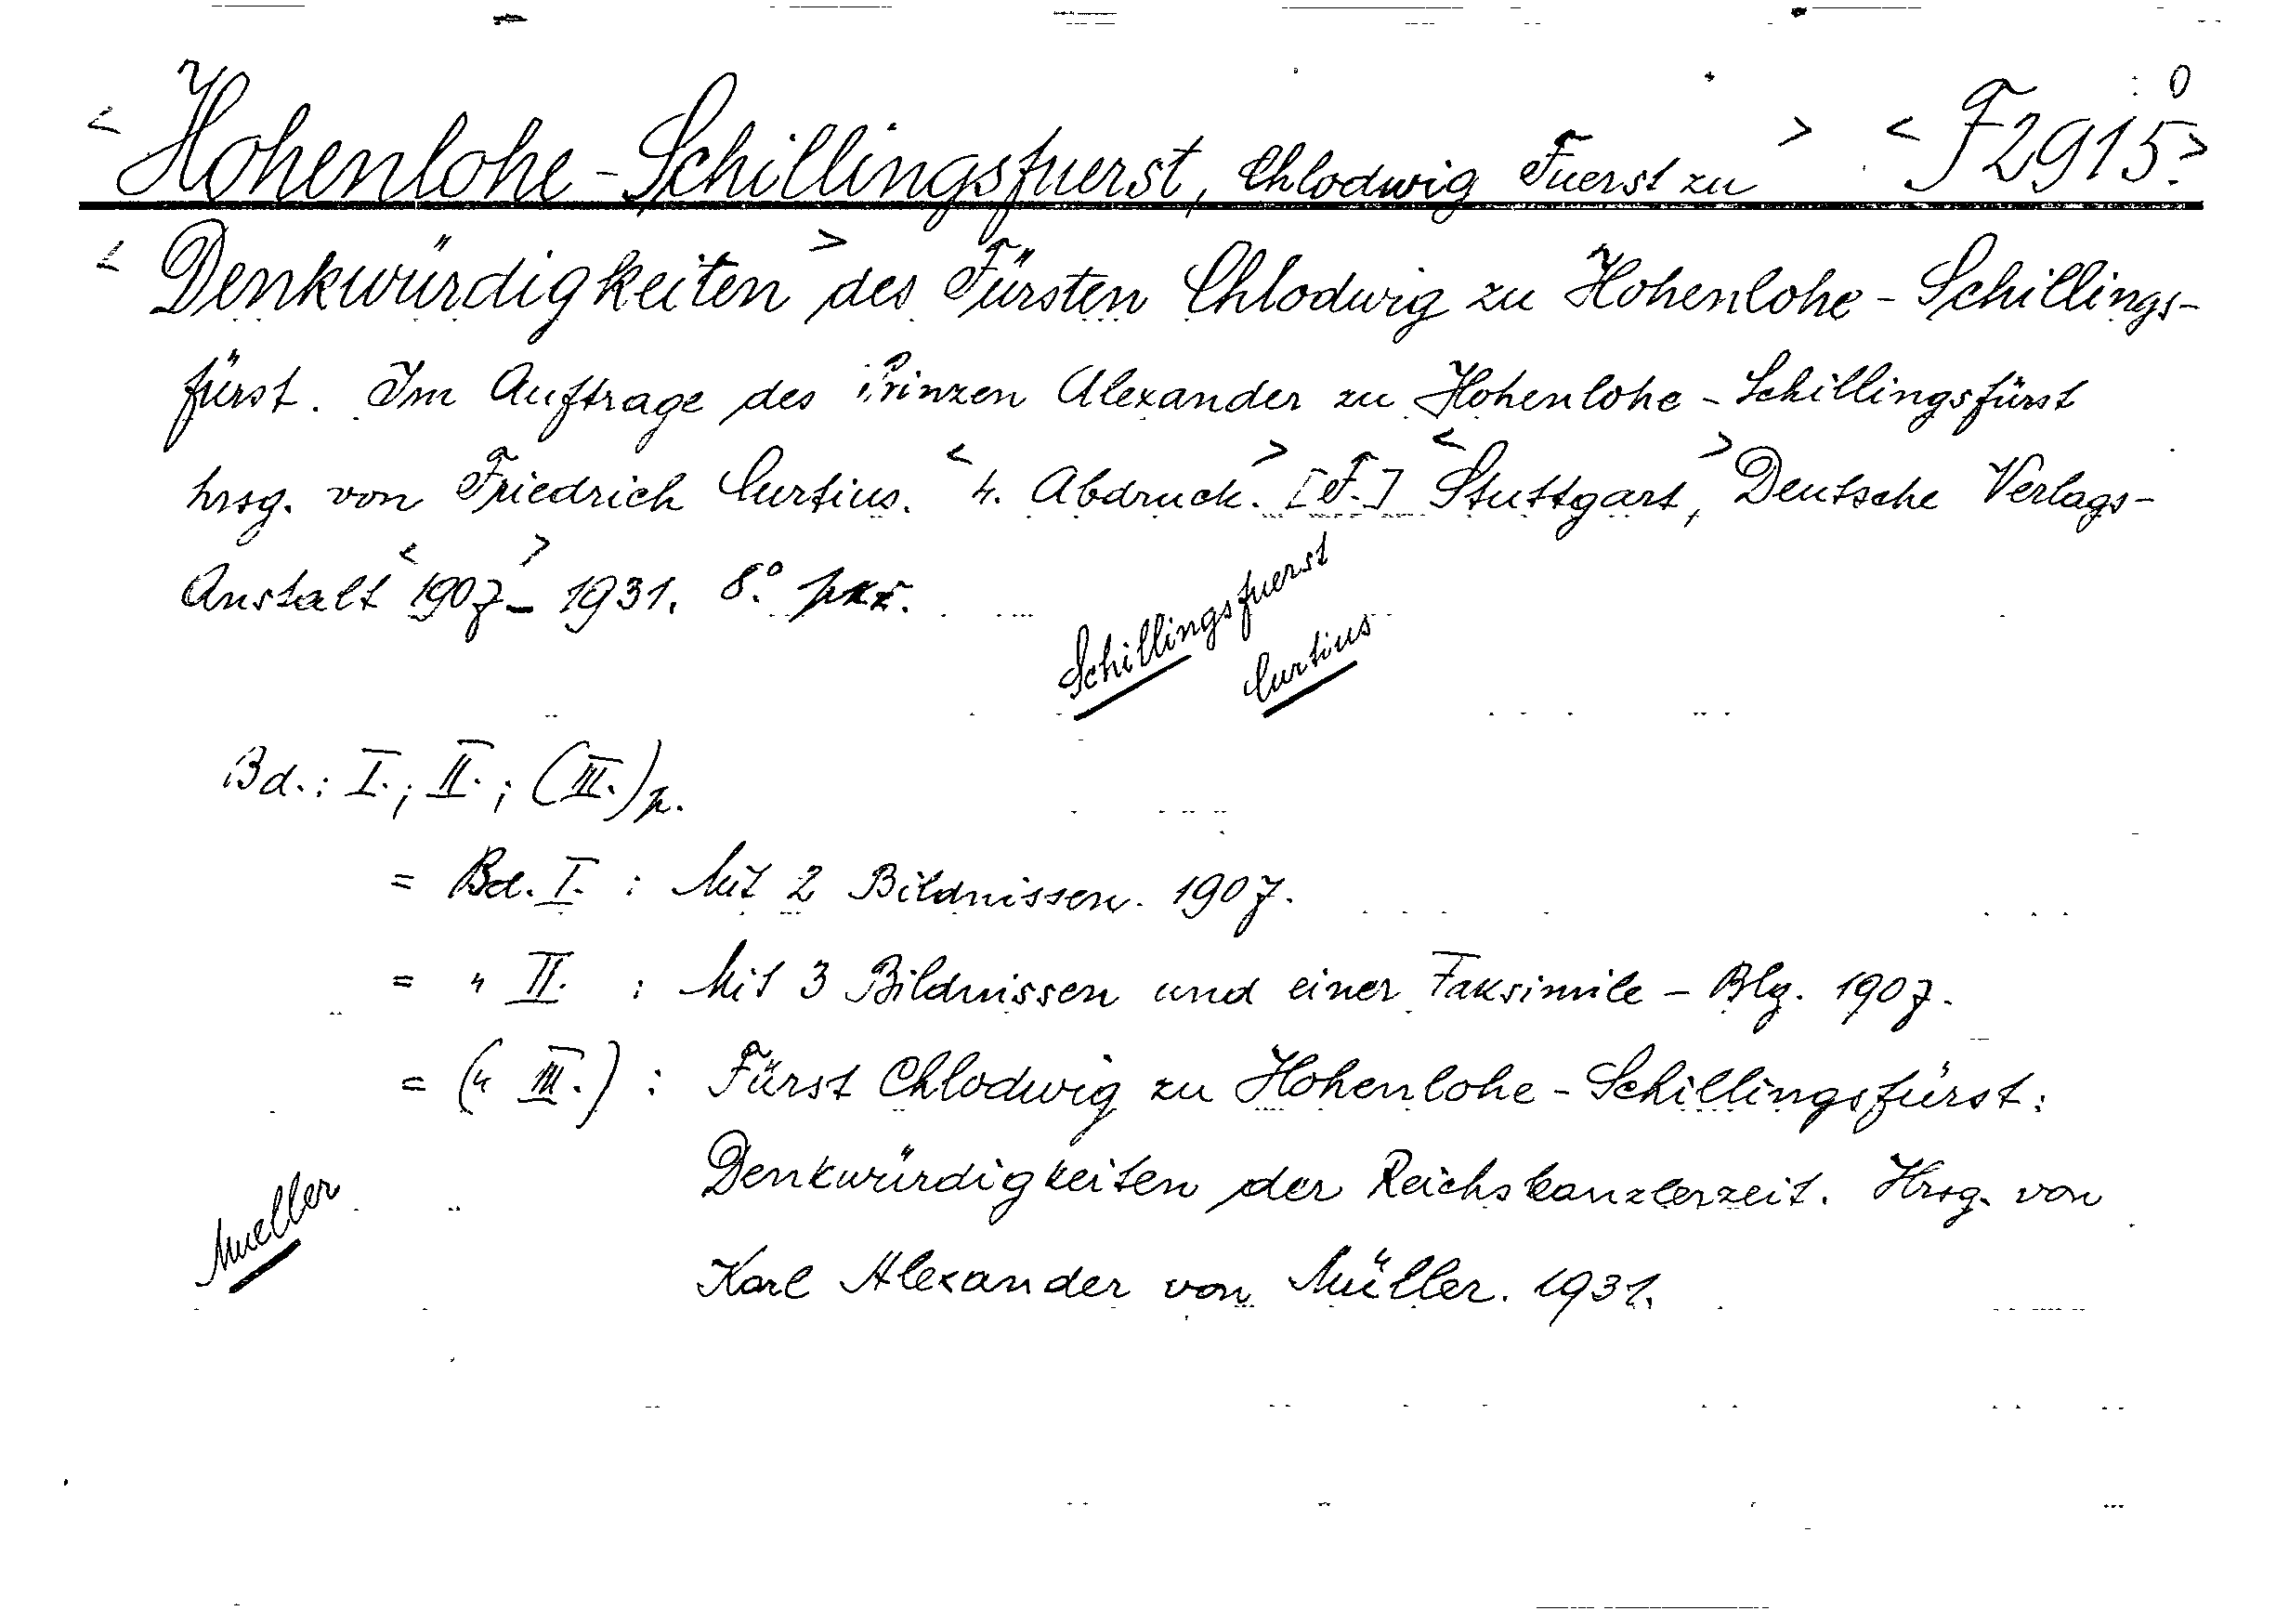 < Hohenlohe-Schillingsfuerst, Chlodwig Fuerst zu > < F2915 >
< Denkwürdigkeiten > des Fürsten Chlodwig zu Hohenlohe-Schillings-
fürst. Im Auftrage des Prinzen Alexander zu Hohenlohe-Schillingsfürst
hrsg. von Friedrich Curtius. < 4. Abdruck. > [F.] < Stuttgart, > Deutsche Verlags-
Anstalt < 1907 > - 1931. 8°.
Schillingsfuerst
Curtius
Bd.: I.; II.; (III.)
= Bd. I. : Mit 2 Bildnissen. 1907.
= " II. : Mit 3 Bildnissen und einer Faksimile-Blg. 1907.
= (" III.) : Fürst Chlodwig zu Hohenlohe-Schillingsfürst:
Denkwürdigkeiten der Reichskanzlerzeit. Hrsg. von
Mueller
Karl Alexander von Müller. 1931.